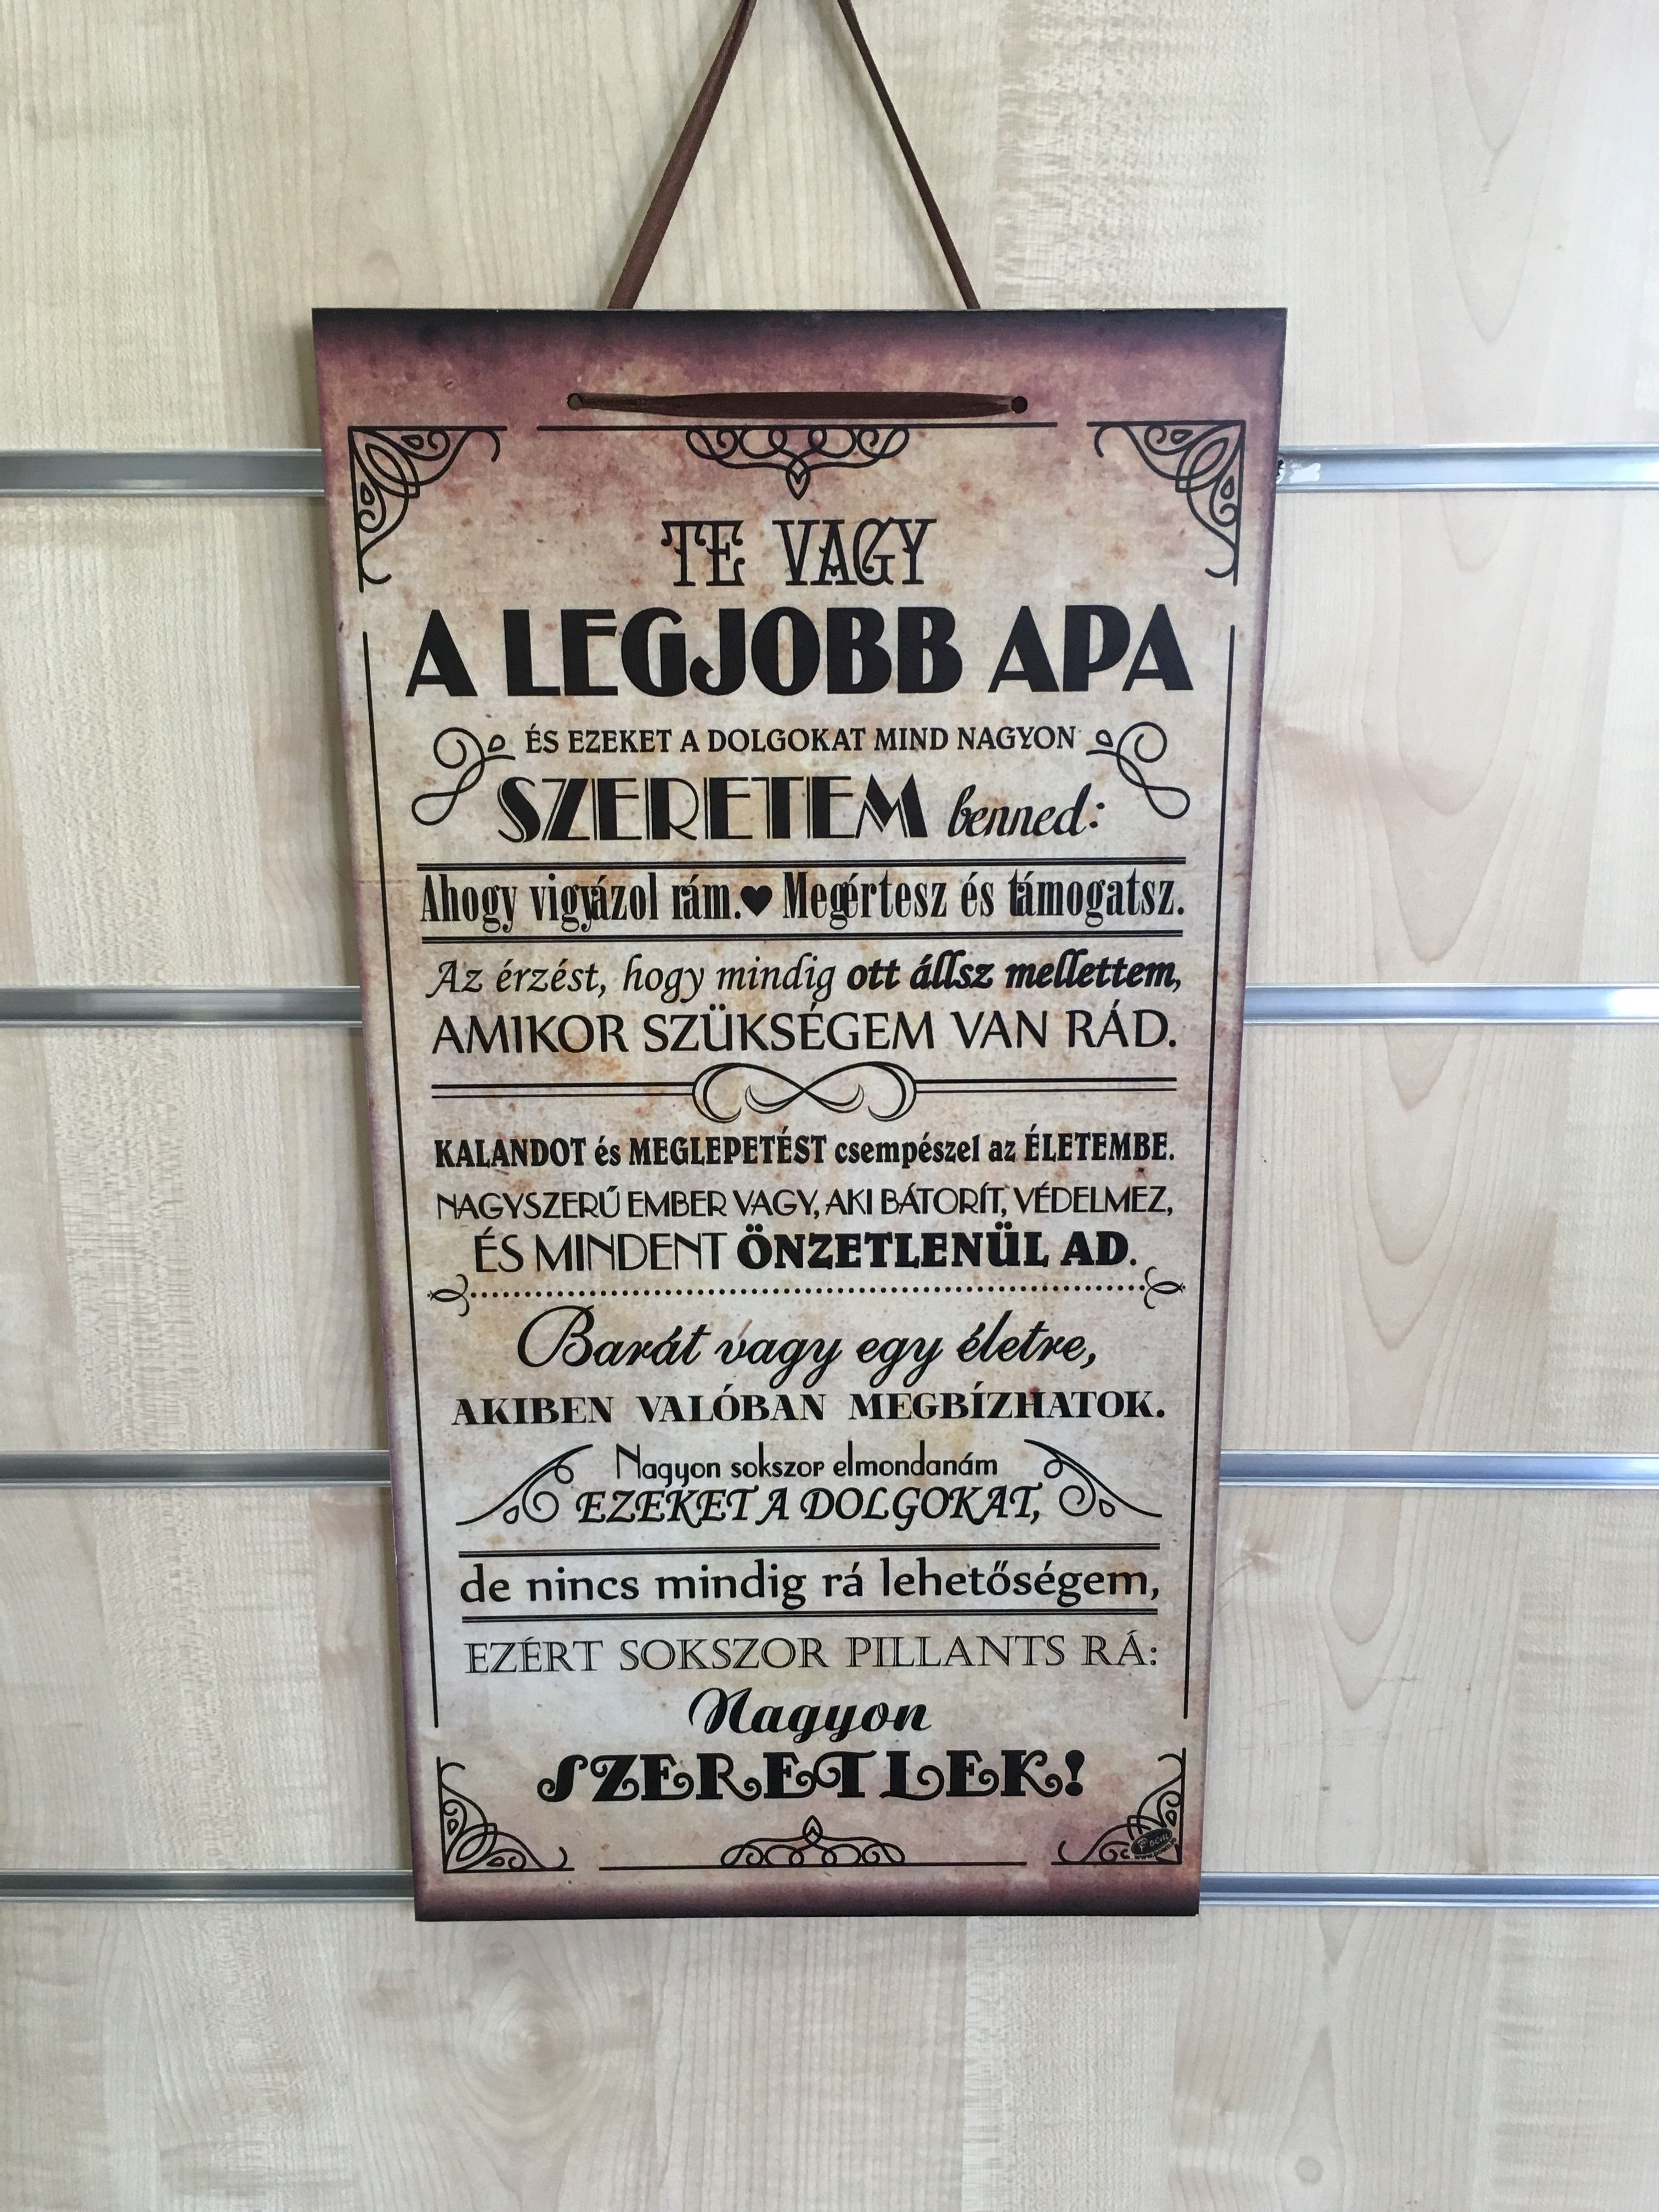 TE VAGY
A LEGJOBB APA
ÉS EZEKET A DOLGOKAT MIND NAGYON
SZERETEM benned:
Ahogy vigyázol rám.♥ Megértesz és támogatsz.
Az érzést, hogy mindig ott állsz mellettem,
AMIKOR SZÜKSÉGEM VAN RÁD.
KALANDOT és MEGLEPETÉST csempészel az ÉLETEMBE.
NAGYSZERŰ EMBER VAGY, AKI BÁTORÍT, VÉDELMEZ,
ÉS MINDENT ÖNZETLENÜL AD.
Barát vagy egy életre,
AKIBEN VALÓBAN MEGBÍZHATOK.
Nagyon sokszor elmondanám
EZEKET A DOLGOKAT,
de nincs mindig rá lehetőségem,
EZÉRT SOKSZOR PILLANTS RÁ:
Nagyon
SZERETLEK!